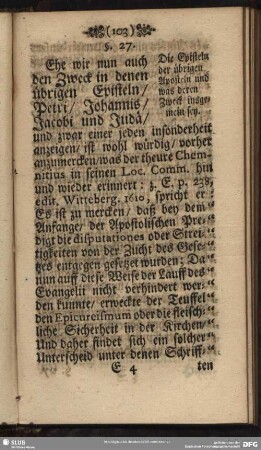 (103)
§. 27.
Ehe wir nun auch
den Zweck in denen
übrigen Episteln/
Petri/ Johannis/
Jacobi und Judä/
Die Episteln
der übrigen
Aposteln und
was deren
Zweck insge-
mein sey.
und zwar einer jeden insonderheit
anzeigen/ ist wohl würdig/ vorher
anzumercken/ was der theure Chem-
nitius in seinen Loc. Comm. hin
und wieder erinnert: z. E. p. 238,
edit. Witteberg. 1610, spricht er:
Es ist zu mercken/ daß bey dem
Anfange/ der Apostolischen Pre-
digt die disputationes oder Strei-
tigkeiten von der Zucht des Gese-
tzes entgegen gesetzet wurden: Da
nun auff diese Weise der Lauff des
Evangelii nicht verhindert wer-
den kunnte/ erweckte der Teuffel
den Epicureismum oder die fleisch-
liche Sicherheit in der Kirchen/
Und daher findet sich ein solcher
Unterscheid unter denen Schriff-
E 4
ten
SLUB
DFG